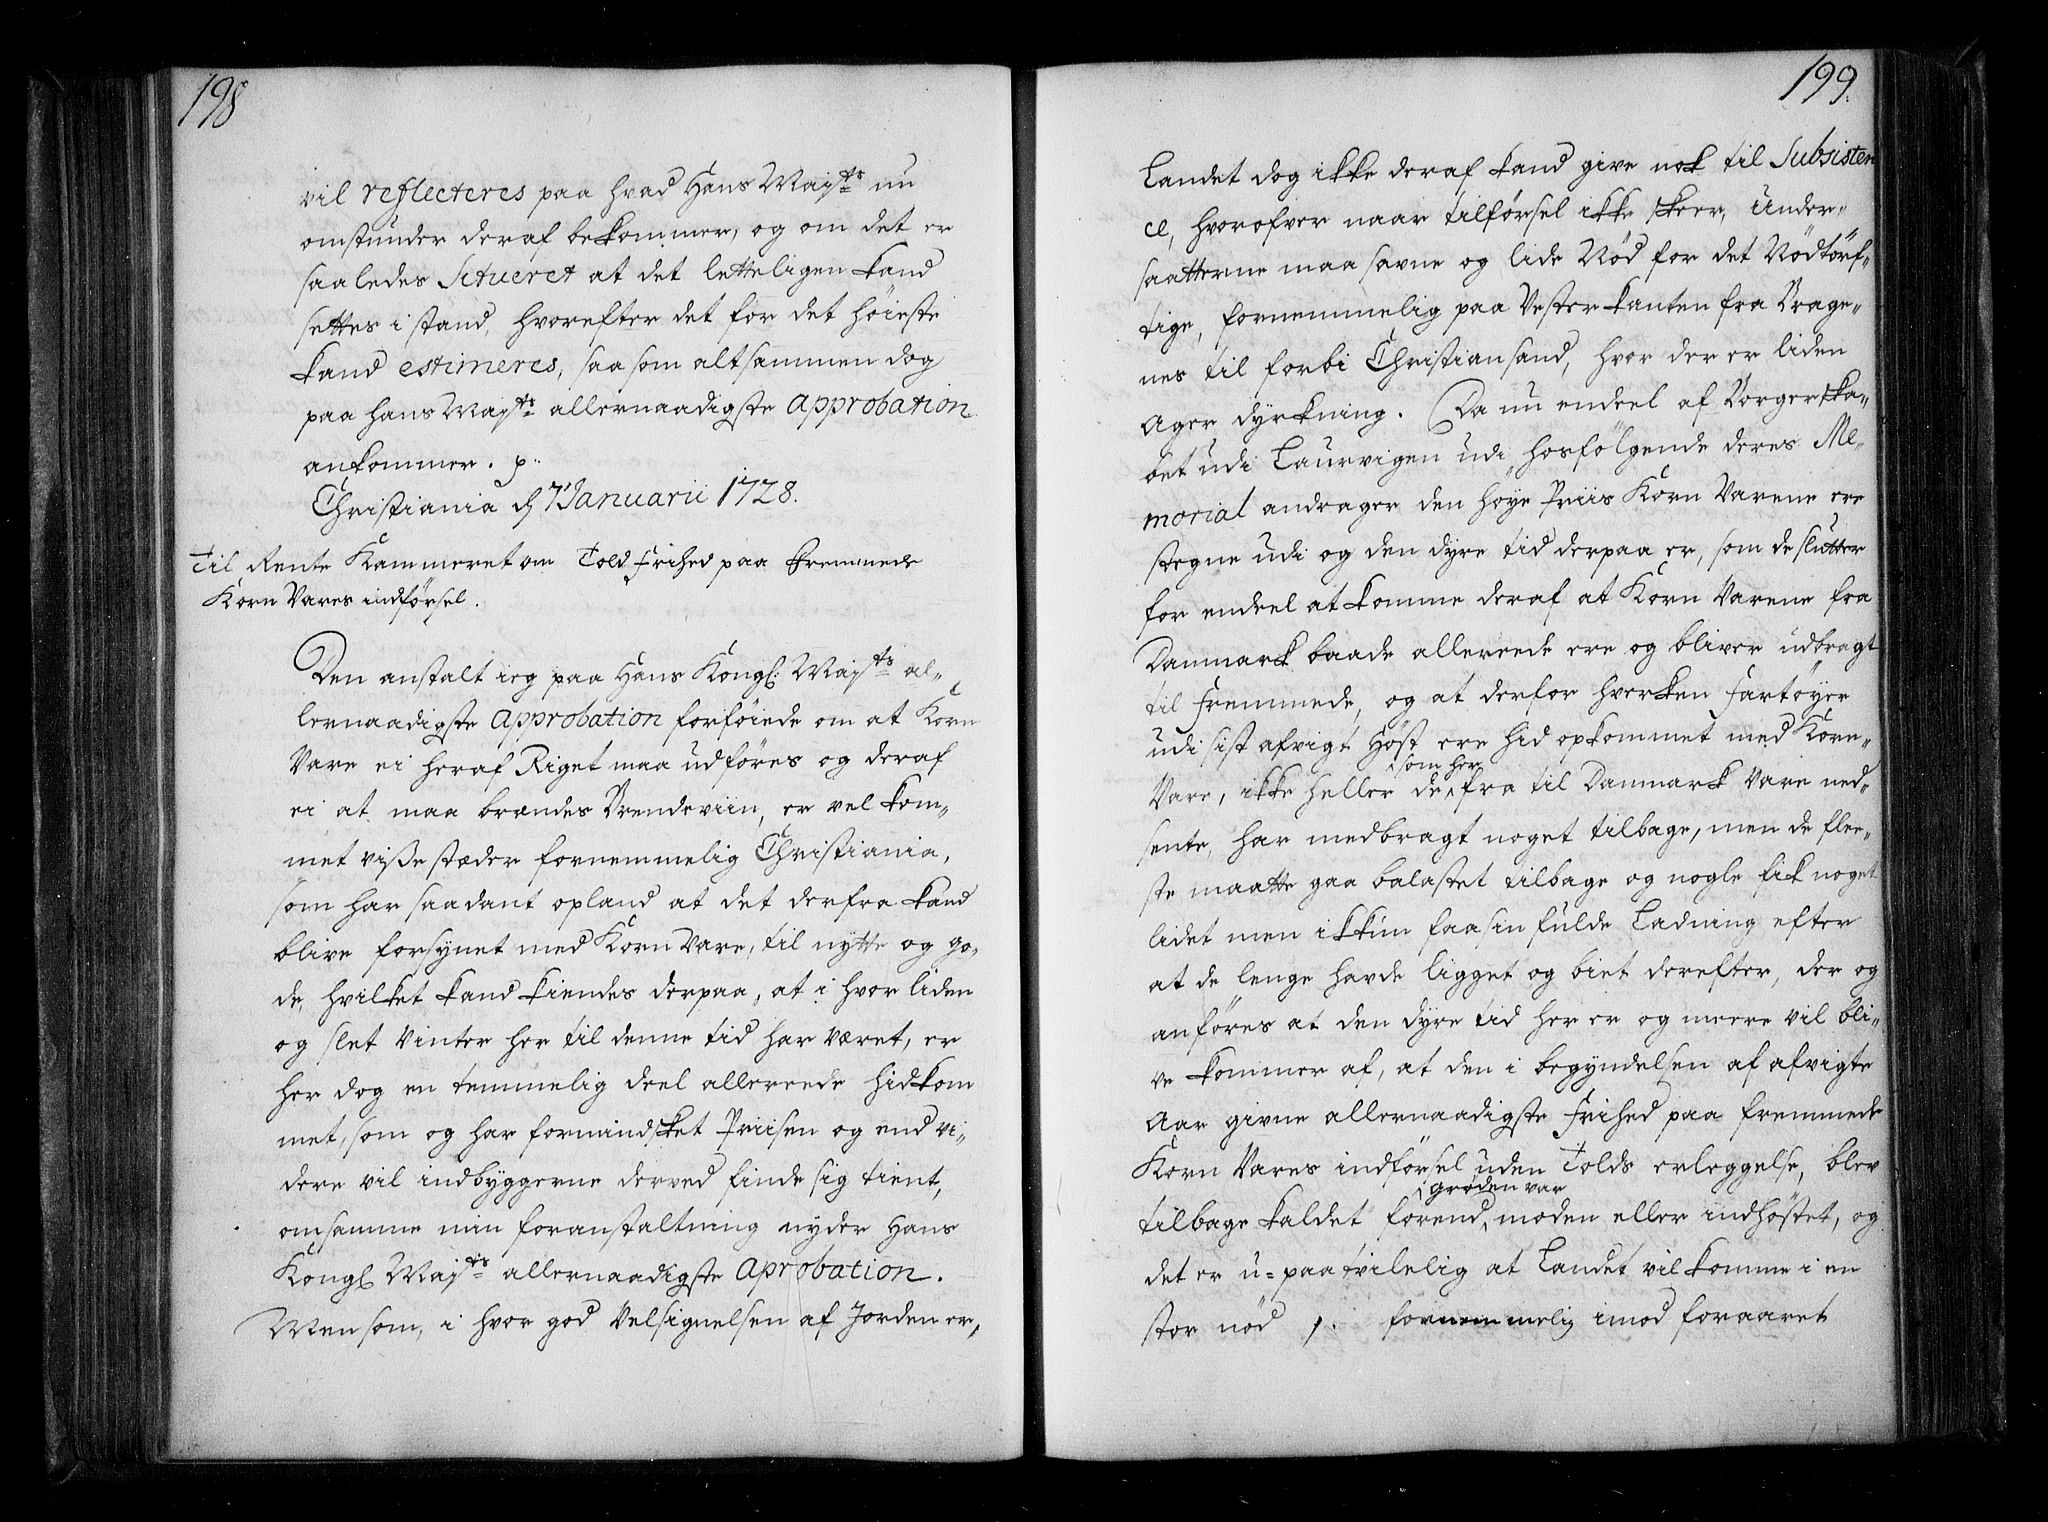 198
vil reflecteres paa hvad Hans Mayts nu
omstunder deraf bekommer, og om det er
saaledes Situeret at det letteligen kand
settes i stand, hvorefter det for det høieste
kand estimeres, saasom altsammen dog
paa hans Mayts allernaadigste approbation
ankommer. p.
Christiania d 7 Januarii 1728.
Til Rente Kammeret om Told Frihed paa fremmede
Korn Vares indførsel.
Den anstalt ieg paa Hans Kongl: Mayts al-
lernaadigste approbation forføiede om at Korn
Vare ei heraf Riget maa udføres og deraf
ei at maa brændes Brendeviin, er vel kom-
met visse stæder fornemmelig Christiania,
som har saadant opland at det derfra kand
blive forsynet med Korn Vare, til nytte og go-
de, hvilket kand kiendes derpaa, at i hvor liden
og slet Vinter her til denne tid har været, er
her dog en temmelig deel allereede hidkom
met, som og har formindsket Priisen og end vi-
dere vil indbyggerne derved finde sig tient,
om samme min foranstaltning nyder Hans
Kongl Mayts allernaadigste Aprobation.
Men som, i hvor god Velsignelsen af Jorden er,
199.
Landet dog ikke deraf kand give nok til Subsisten
ce, hvorofver naar tilførsel ikke skeer, Under-
saatterne maa savne og lide Nød for det Nødtørf-
tige, fornemmelig paa Vester kanten fra Brage-
nes til forbi Christiansand, hvor der er liden
Ager dyrkning. Da nu endeel af Borgerska-
bet udi Laurvigen udi hosfølgende deres Me-
morial andrager den høye Priis Korn Varene ere
stegne udi og den dyre tid derpaa er, som de slutter
for endeel at komme deraf at Korn Varene fra
Danmark baade allereede ere og bliver udbragt
til Fremmede, og at derfor hverken Fartøyer
udi sist afvigt Høst ere hid opkommet med Korn-
Vare, ikke heller de som her fra til Danmark Vare ned-
sente, har medbragt noget tilbage, men de flee-
ste maatte gaa balastet tilbage og nogle fik noget
lidet men ikkun faa sin fulde Ladning efter
at de lenge havde ligget og biet derefter, der og
anføres at den dyre tid her er og meere vil bli-
ve kommer af, at den i begyndelsen af afvigte
Aar givne allernaadigste Frihed paa fremmede
Korn Vares indførsel uden Tolds erleggelse, blev
tilbage kaldet førend grøden var moden eller indhøstet, og
det er u-paatvilelig at Landet vil komme i en
stor nød p. fornemmelig imod foraaret